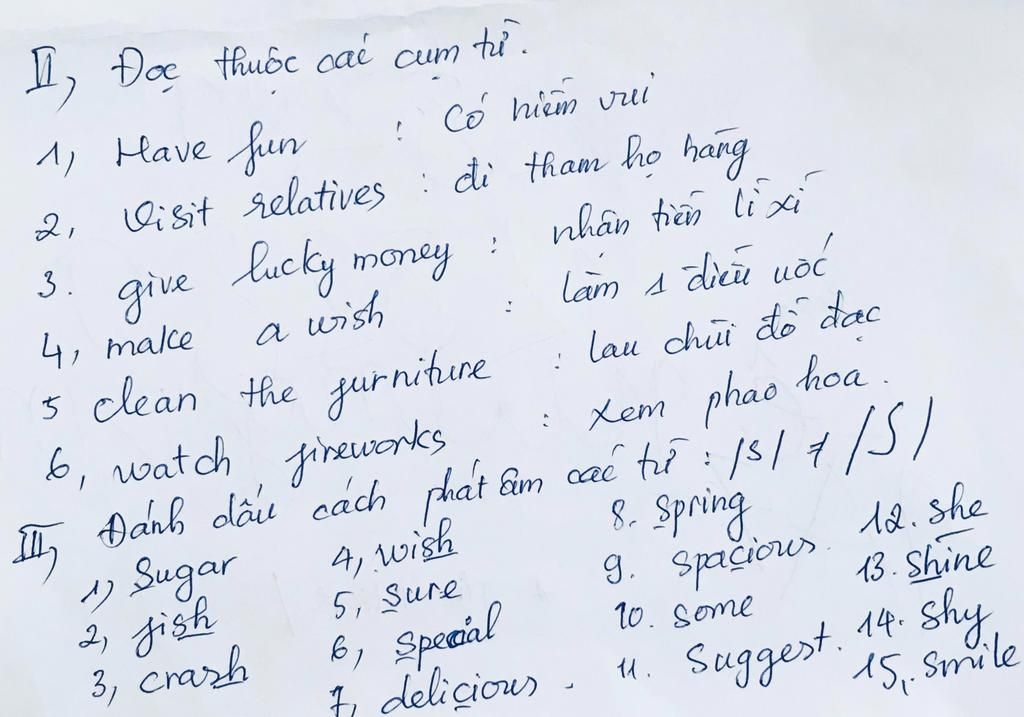 II, Đọc thuộc các cụm từ.
1, Have fun : Có niềm vui
2, Visit relatives : đi thăm họ hàng
3. give lucky money : nhận tiền lì xì
4, make a wish : làm 1 điều ước
5 clean the furniture : lau chùi đồ đạc
6, watch fireworks : xem pháo hoa.
III, Đánh dấu cách phát âm các từ : /s/ ≠ /ʃ/
1, Sugar 4, wish 8. Spring 12. she
2, fish 5, sure 9. spacious. 13. shine
3, crash 6, special 10. some 14. shy
7, delicious. 11. suggest. 15, smile